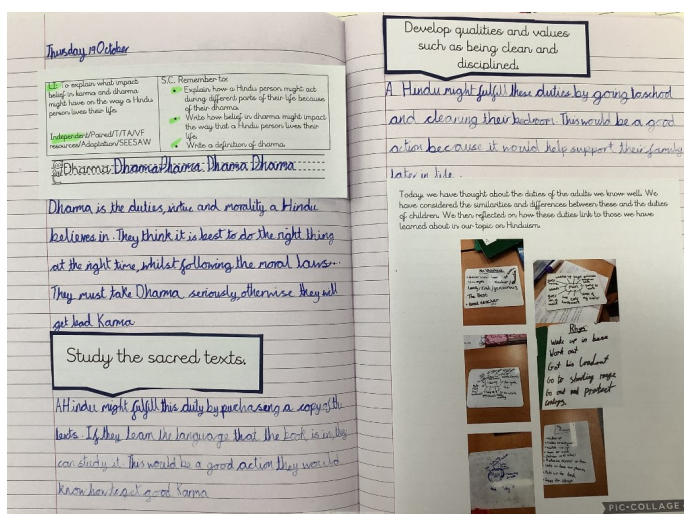 Thursday 19 October
LI: To explain what impact
belief in karma and dharma
might have on the way a Hindu
person lives their life.
Independent/Paired/T/TA/VF
resources/Adaptation/SEESAW
S.C. Remember to:
Explain how a Hindu person might act
during different parts of their life because
of their dharma.
Write how belief in dharma might impact
the way that a Hindu person lives their
life.
Write a definition of dharma.
Dharma Dharma Dharma Dharma Dharma
Dharma is the duties, virtue and morality a Hindu
believes in. They think it is best to do the right thing
at the right time, whilst following the moral laws.
They must take Dharma seriously, otherwise they will
get bad Karma
Study the sacred texts.
A Hindu might fulfill this duty by puchaseng a copy of the
texts. If they learn the language that the book is in, they
can study it. This would be a good action they would
know how to get good Karma
Develop qualities and values
such as being clean and
disciplined.
A Hindu might fulfill these duties by going to school
and cleaning their bedroom. This would be a good
action because it would help support their family
later in life.
Today, we have thought about the duties of the adults we know well. We
have considered the similarities and differences between these and the duties
of children. We then reflected on how these duties link to those we have
learned about in our topic on Hinduism.
The Best
Good teacher
Wake up in base
Work out
Get his loadout
Go to shooting range
Go out and protect
PIC•COLLAGE